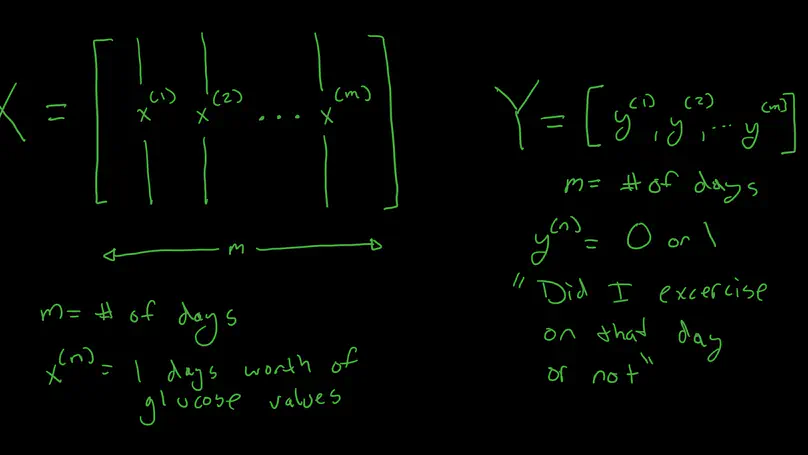 X = [ x^(1) x^(2) ... x^(m) ]
m
m = # of days
x^(n) = 1 days worth of
glucose values
Y = [ y^(1), y^(2), ... y^(m) ]
m = # of days
y^(n) = 0 or 1
"Did I excercise
on that day
or not"